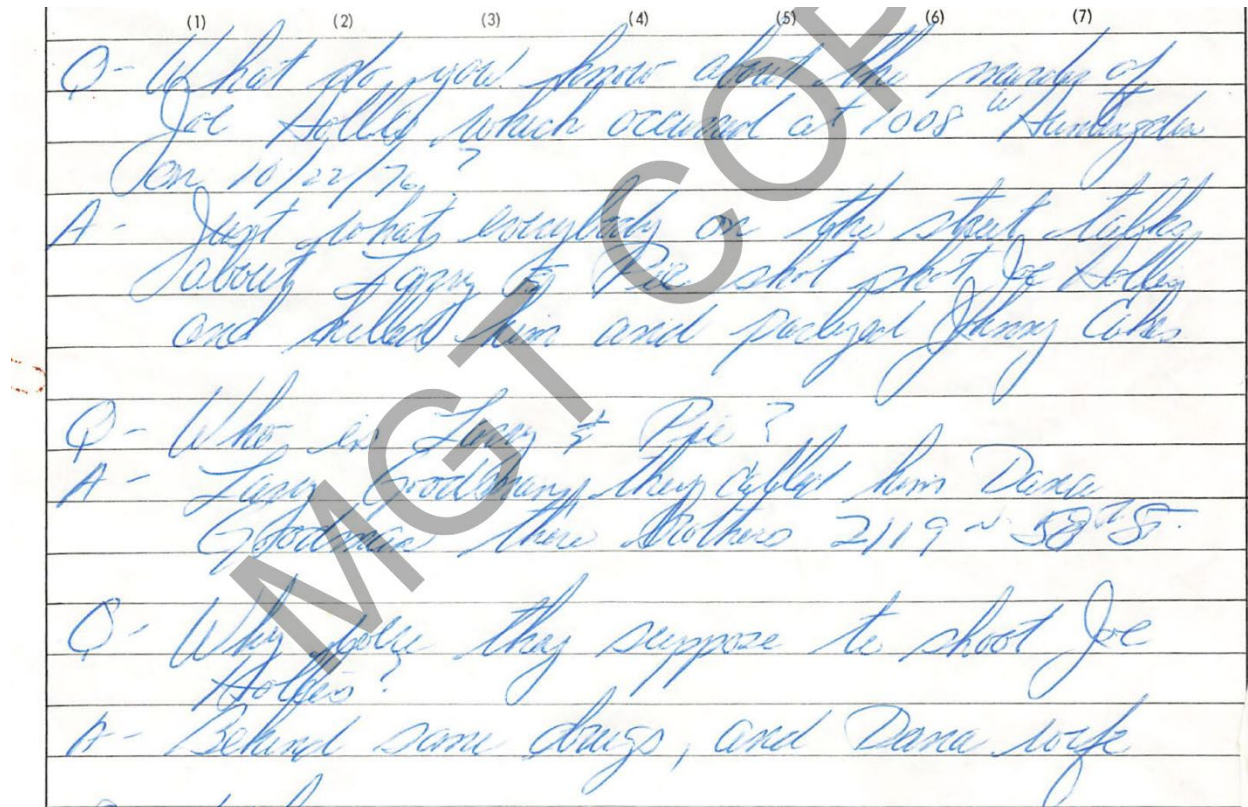 (1) (2) (3) (4) (5) (6) (7)
Q- What do you know about the murder of
Joe Hollis which occurred at 1008 W Huntingdon
on 10/22/76?
A- Just what everybody on the street talks
about Larry & Pie shot shot Joe Hollis
and killed him and paralyzed Johnny Cakes
Q- Who is Larry & Pie?
A- Larry Goodman, they called him Dana
Goodman there brothers 2119 N. 58th St.
Q- Why were they suppose to shoot Joe
Hollis?
A- Behind some drugs, and Dana wife
MGT COP